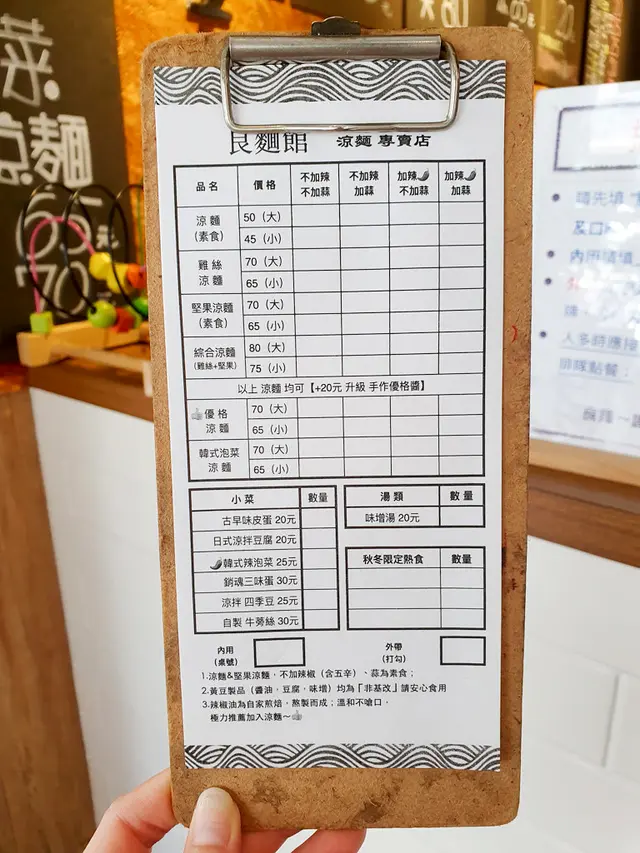 菜
涼麵
65元
70
80
65元
20
良麵館 涼麵 專賣店
品名 價格 不加辣 不加蒜 不加辣 加蒜 加辣 不加蒜 加辣 加蒜
涼麵 (素食) 50 (大)
45 (小)
雞絲 涼麵 70 (大)
65 (小)
堅果涼麵 (素食) 70 (大)
65 (小)
綜合涼麵 (雞絲+堅果) 80 (大)
75 (小)
以上 涼麵 均可【+20元 升級 手作優格醬】
優格 涼麵 70 (大)
65 (小)
韓式泡菜 涼麵 70 (大)
65 (小)
小菜 數量
古早味皮蛋 20元
日式涼拌豆腐 20元
韓式辣泡菜 25元
銷魂三味蛋 30元
涼拌 四季豆 25元
自製 牛蒡絲 30元
湯類 數量
味增湯 20元
秋冬限定熱食 數量
內用 (桌號)
外帶 (打勾)
1.涼麵&堅果涼麵，不加辣椒（含五辛）、蒜為素食；
2.黃豆製品（醬油，豆腐，味增）均為「非基改」請安心食用
3.辣椒油為自家煎焙，熬製而成；溫和不嗆口，
極力推薦加入涼麵～
請先填
及口
內用請填
人多時應接
排隊點餐；